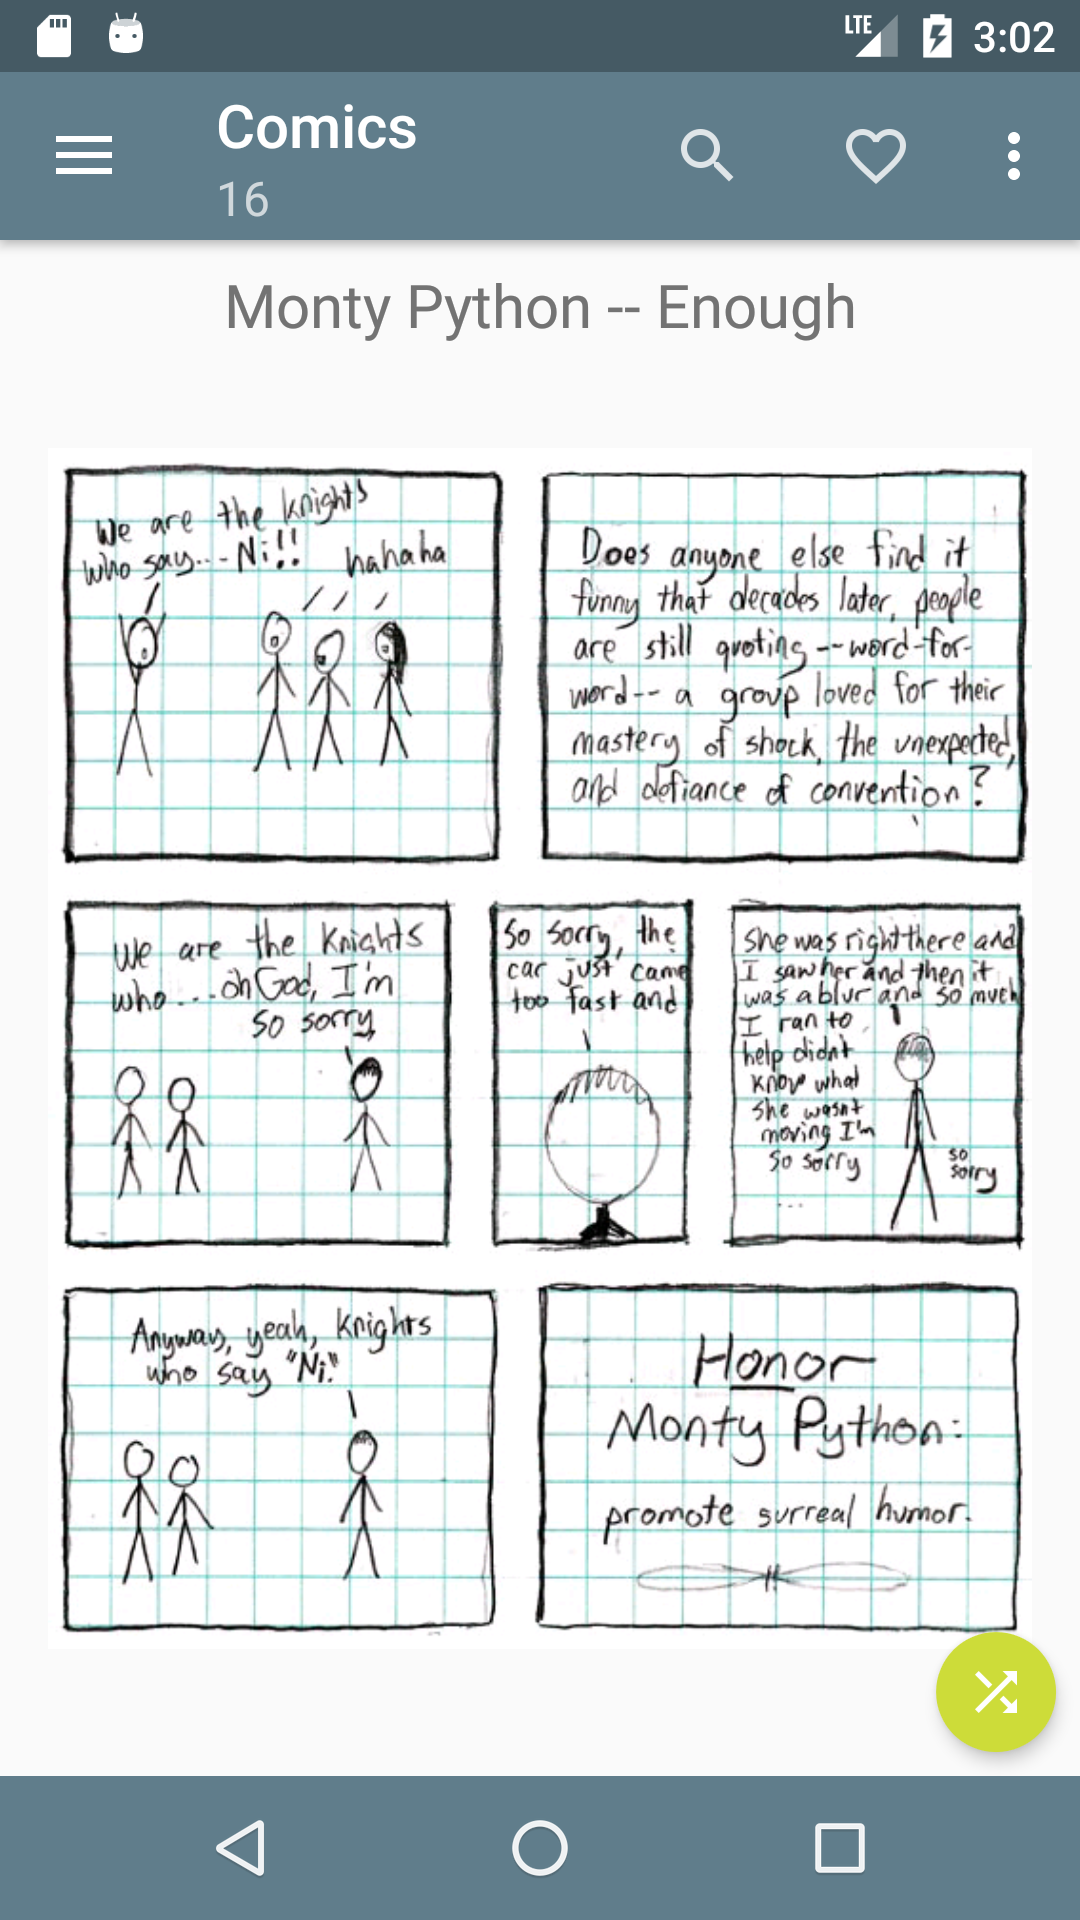 LTE
3:02
Comics
16
Monty Python -- Enough
We are the knights
who say... -Ni!!
hahaha
Does anyone else find it
funny that decades later, people
are still quoting --word-for-
word-- a group loved for their
mastery of shock, the unexpected,
and defiance of convention?
We are the Knights
who... oh God, I'm
so sorry
So sorry, the
car just came
too fast and
She was right there and
I saw her and then it
was a blur and so much
I ran to
help didn't
know what
she wasn't
moving I'm
so sorry
...
so
sorry
Anyway, yeah, Knights
who say "Ni."
Honor
Monty Python:
promote surreal humor.